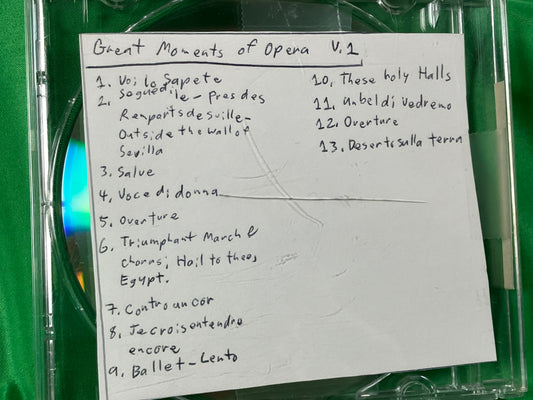 Great Moments of Opera V.1
1. Voi lo Sapete
2. Seguedile - Pres des
Remparts de sville -
Outside the wall of
Sevilla
3. Salve
4. Voce di donna
5. Overture
6. Triumphant March &
chorus; Hail to thee,
Egypt.
7. Contro un cor
8. Je crois entendre
encore
9. Ballet - Lento
10. These holy Halls
11. Un bel di vedremo
12. Overture
13. Deserto sulla terra